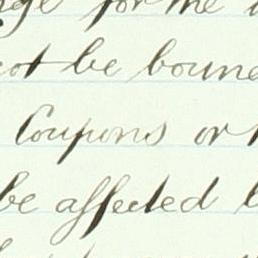 for me
not be boun
Coupons or
be affected